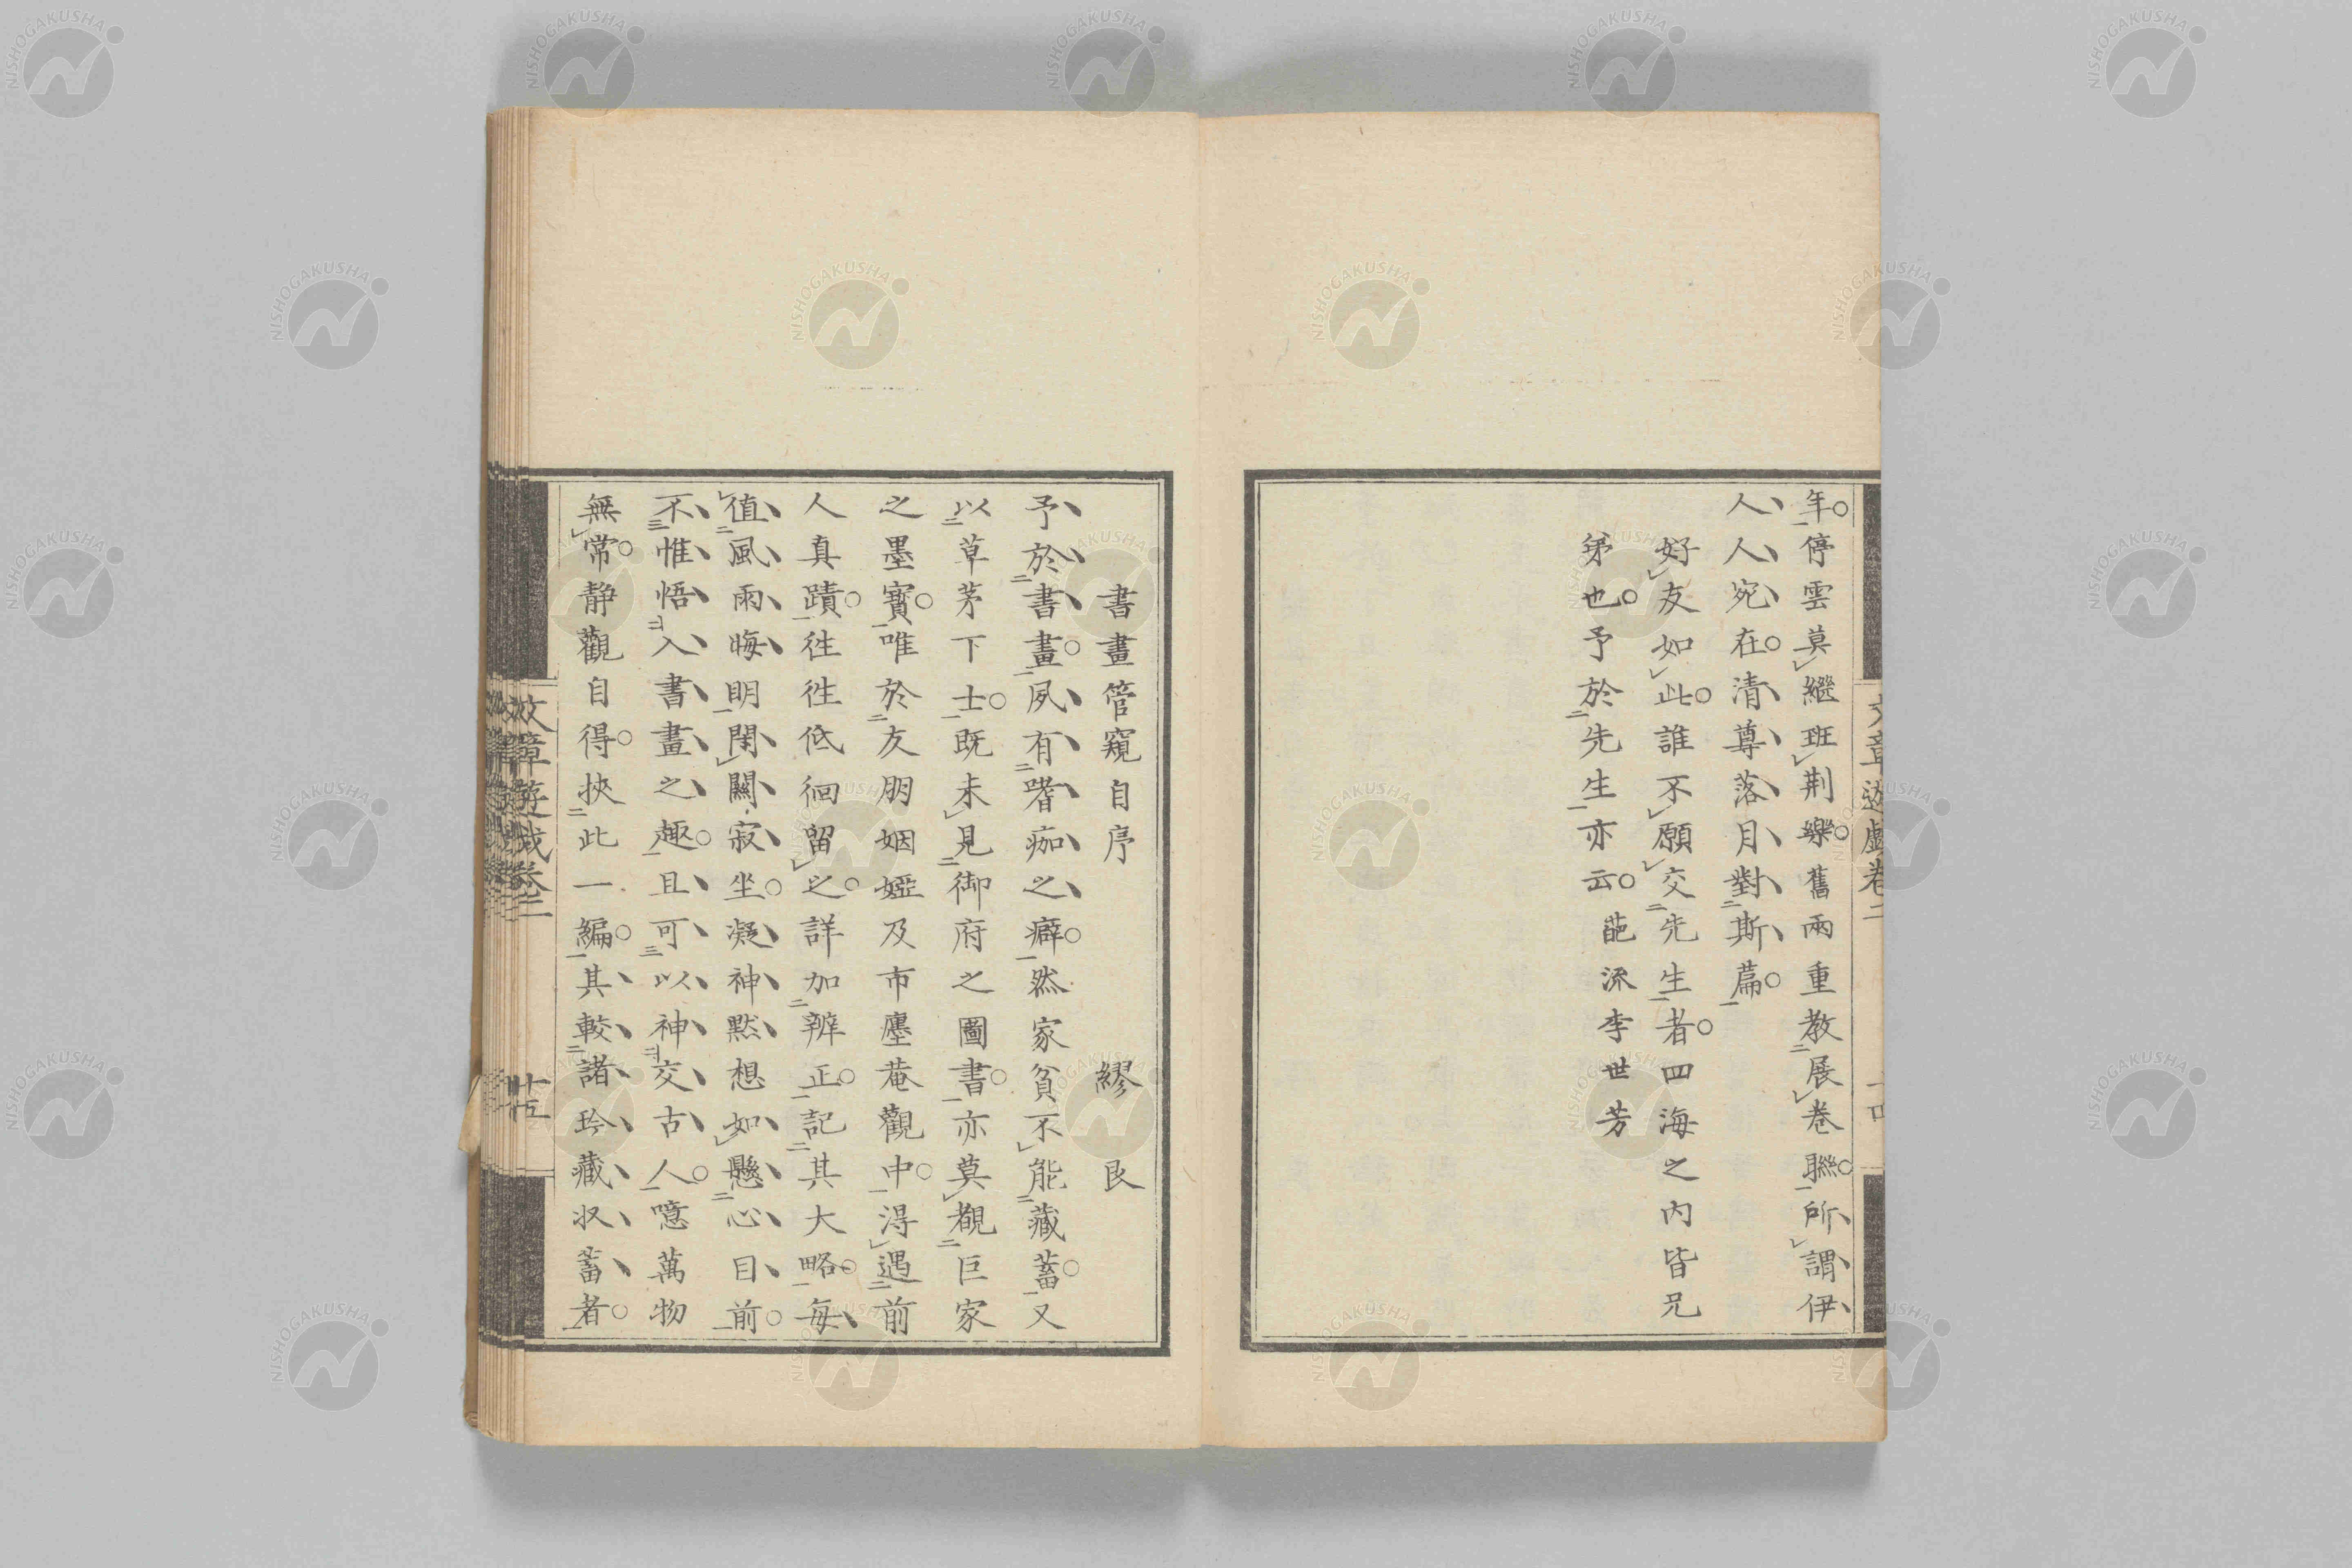 年停雲莫繼班荆樂舊雨重教展卷聯所謂伊
人人宛在清尊落月對斯篇
好友如此誰不願交先生者四海之内皆兄
弟也予於先生亦云 葩流李世芳
文章遊戲卷二
書畫管窺自序 繆艮
予於書畫夙有嗜痂之癖然家貧不能藏蓄又
以草茅下士既未見御府之圖書亦莫覩巨家
之墨寳唯於友朋姻婭及市廛菴觀中得遇前
人真蹟徃徃低徊留之詳加辨正記其大略每
值風雨晦明閑闗寂坐凝神黙想如懸心目前
不惟悟入書畫之趣且可以神交古人噫萬物
無常静觀自得挾此一編其較諸珍藏収蓄者
文章遊戲卷二 廿五
NISHOGAKUSHA